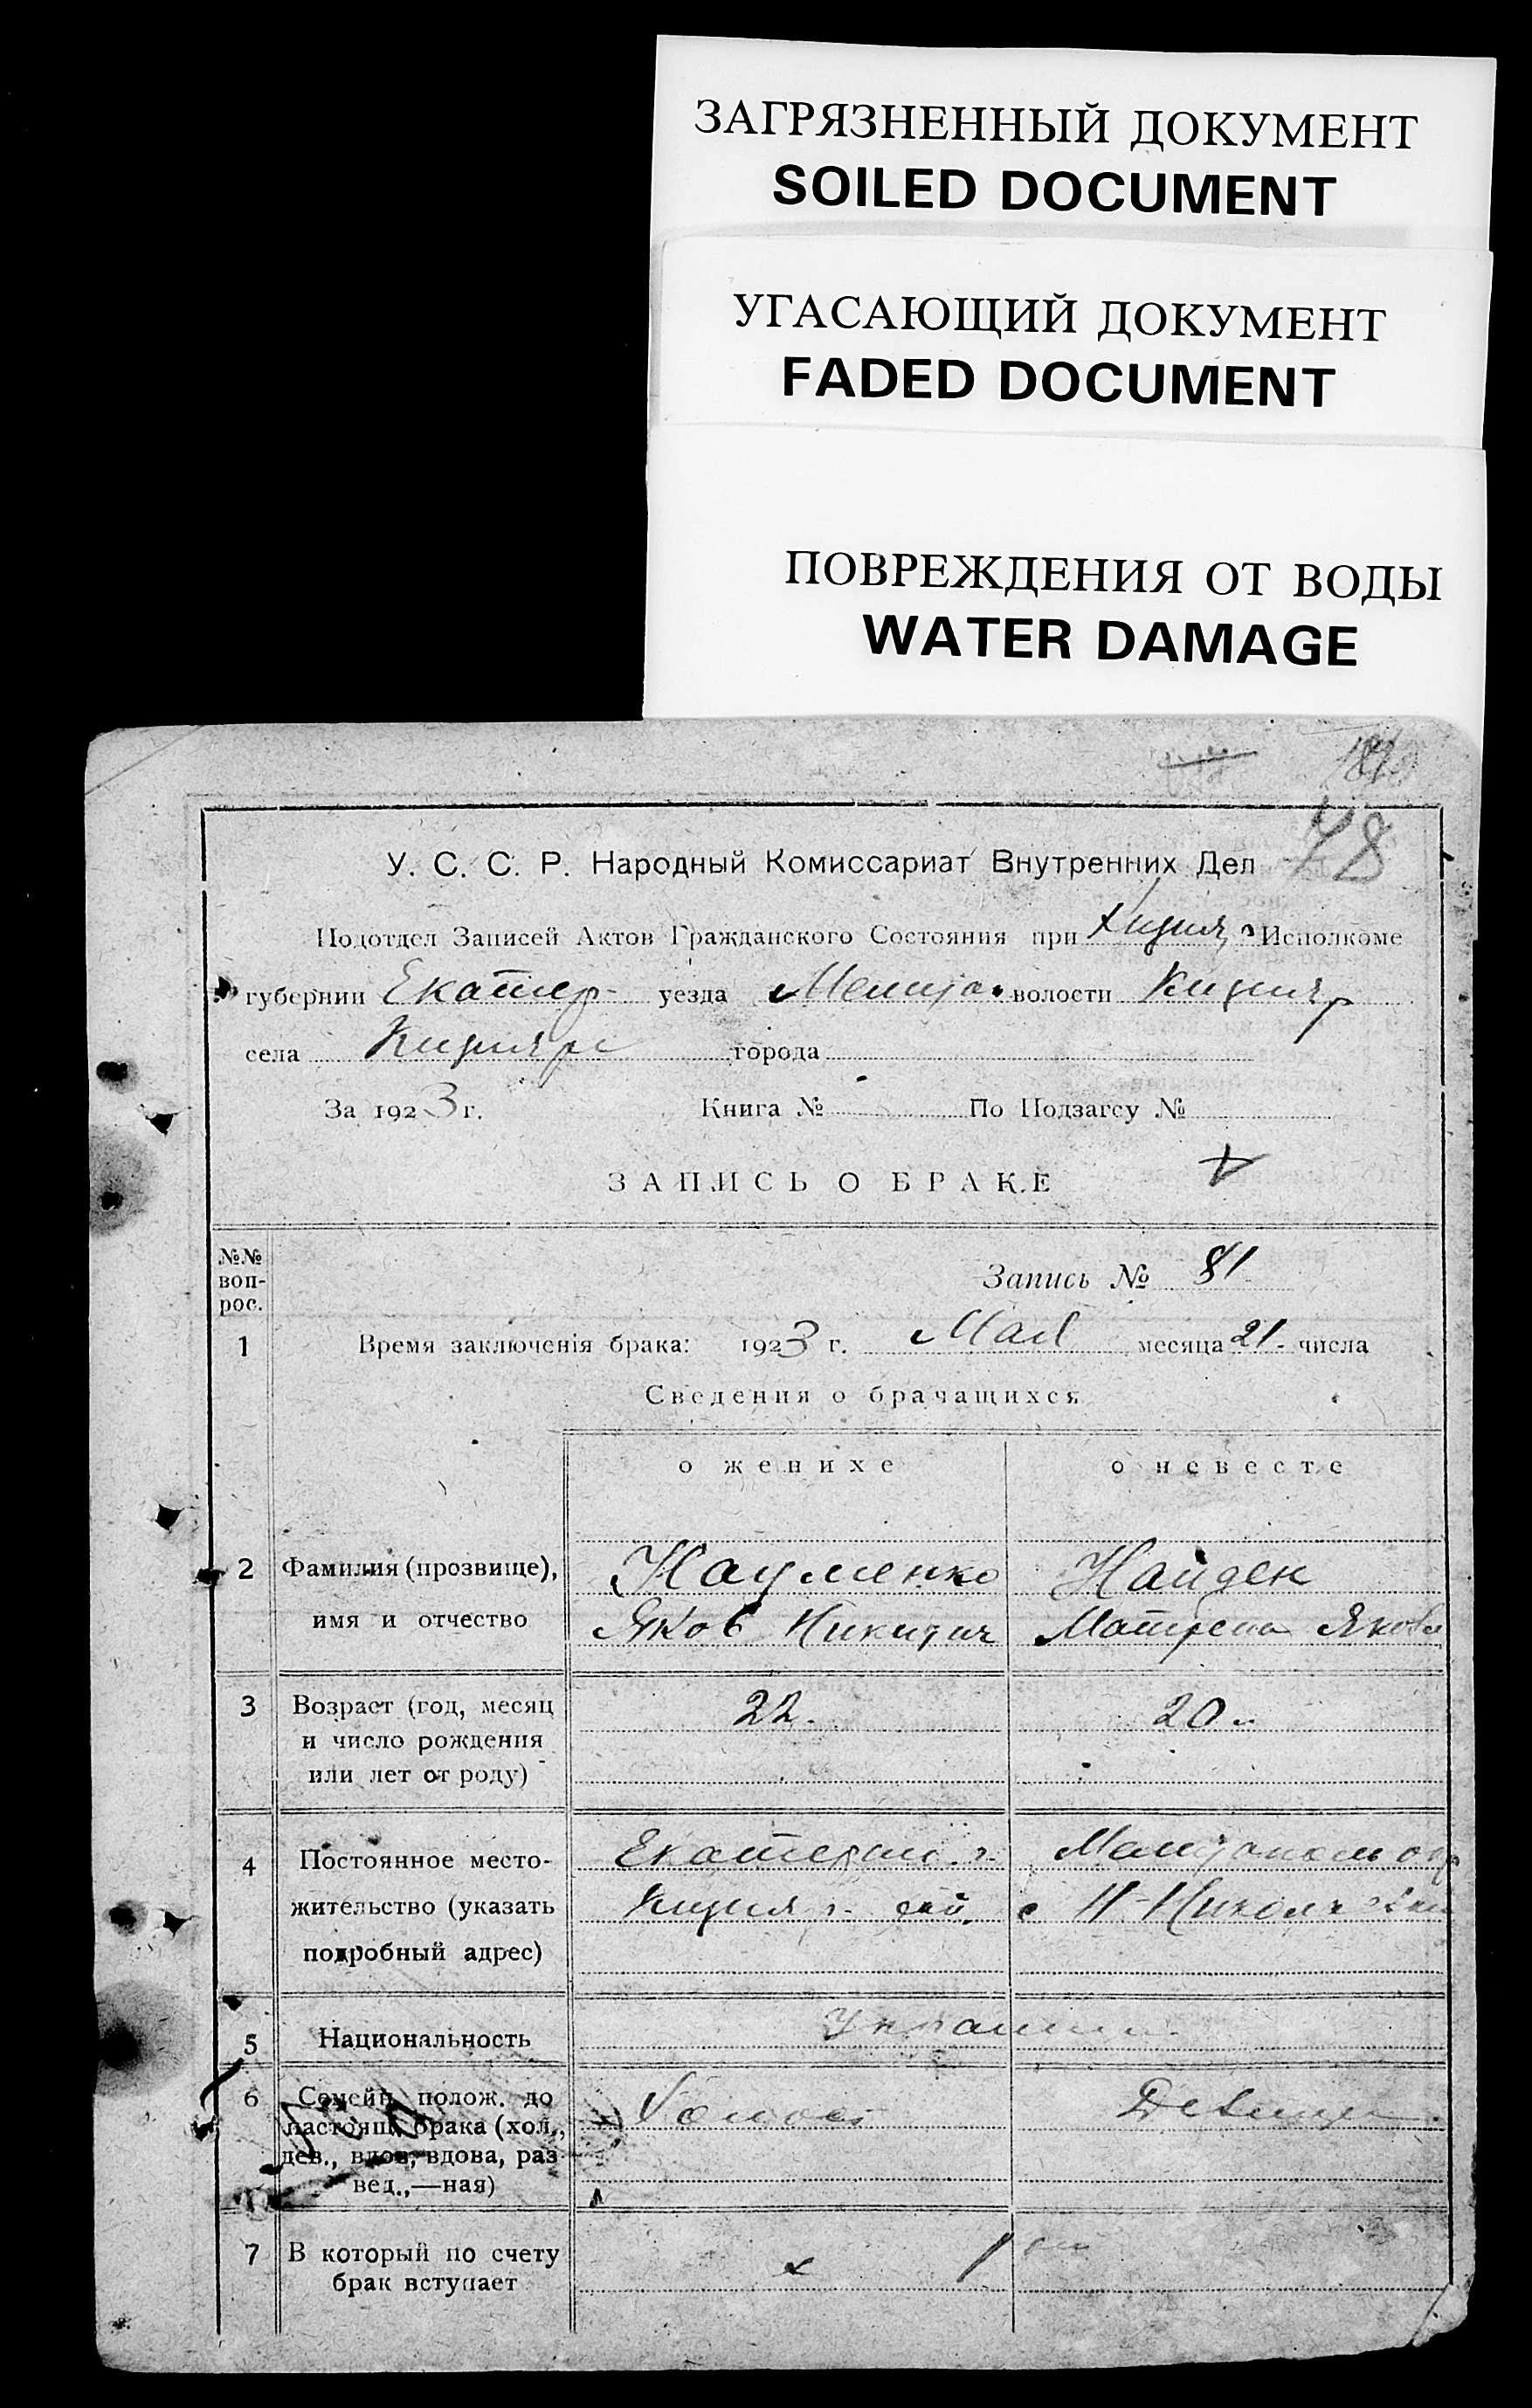 ЗАГРЯЗНЕННЫЙ ДОКУМЕНТ
SOILED DOCUMENT
УГАСАЮЩИЙ ДОКУМЕНТ
FADED DOCUMENT
ПОВРЕЖДЕНИЯ ОТ ВОДЫ
WATER DAMAGE
78
У. С. С. Р. Народный Комиссариат Внутренних Дел
Подотдел Записей Актов Гражданского Состояния при Исполкоме
губернии Екатер уезда волости
села города
За 1923 г. Книга № По Подзагсу №
ЗАПИСЬ О БРАКЕ
№№ воп-рос.
Запись № 81
1 Время заключенія брака: 1923 г. Мая месяца 21. числа
Сведения о брачащихся
о женихе о невесте
2 Фамилия (прозвище), Науменко Найден
имя и отчество Яков Никитич Матрена Яковл
3 Возраст (год, месяц 22. 20
и число рождения
или лет от роду)
4 Постоянное место-
жительство (указать
подробный адрес)
5 Национальность
6 Семейн. полож. до Девица
настоящ. брака (хол.,
дев., вдов, вдова, раз-
вед.,—ная)
7 В который по счету 1
брак вступает